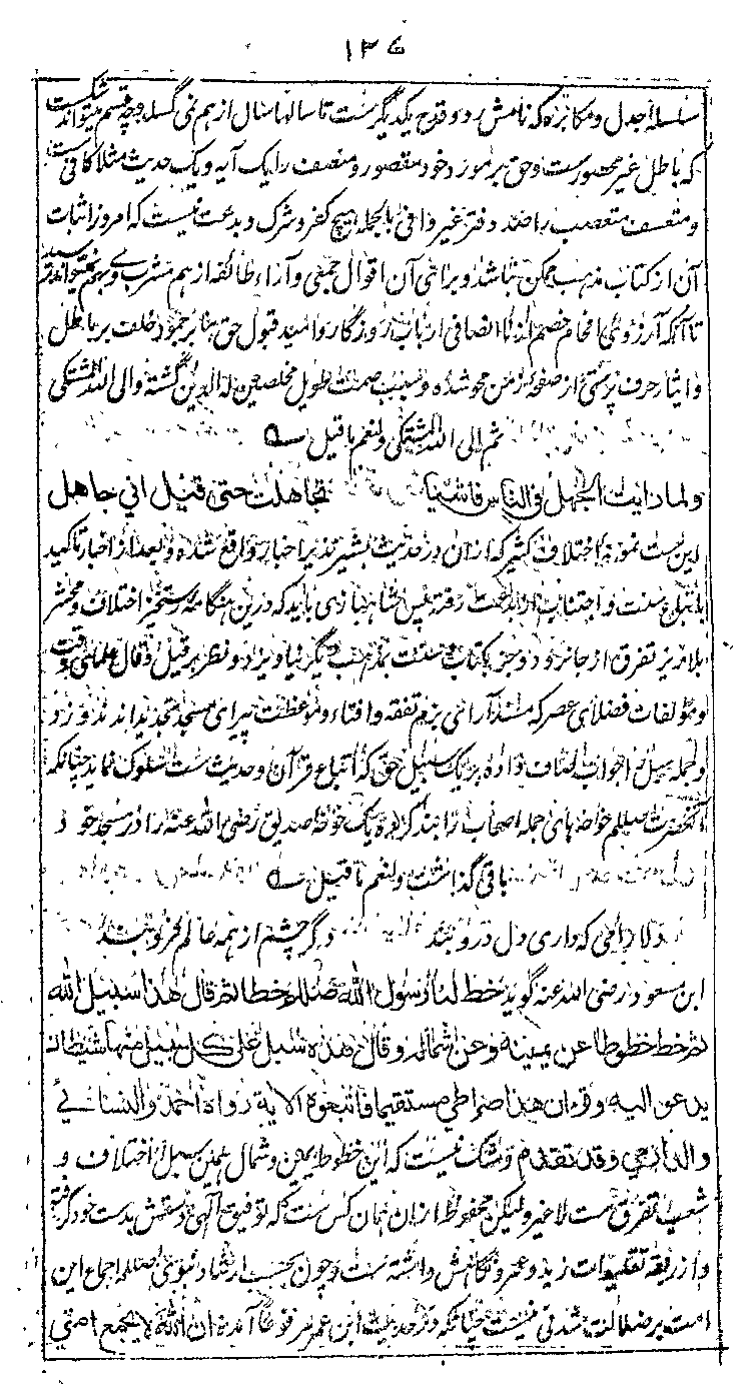 ۱۳۶
سلسله جدل و مکابره که نامش رد و قدح یکدیگر ست تا سالها سال از هم نمی گسلد و چه قسم میتواند شکست
که باطل غیر محصور ست و حق بر مورد خود مقصور و منصف را یک آیه و یک حدیث مثلا کافی ست
و متعسف متعصب را صد دفتر غیر وافی بالجمله هیچ کفر و شرک و بدعت نیست که امروز اثبات
آن از کتاب مذهب ممکن نباشد و براعی آن اقوال جمعی و آراء طائفه از هم مشرب بهم نمیتواند رسید
تا آنکه آرزوی افحام خصم از نا انصافی ارباب روزگار و امید قبول حق بنا بر جمود خلف بر باطل
و ایثار حرف پرستی از صفحه زمن محو شده و سبب صمت طویل مخلصین له الدین گشته والی الله المشتکی
ثم الی الله المشتکی ولنعم ما قیل ؎
ولما رایت الجهل فی الناس فاشیا تجاهلت حتی قیل انی جاهل
این ست نمونه اختلاف کثیر که از ان در حدیث بشیر نذیر اخبار واقع شده و بعد از اخبار تاکید
باتباع سنت و اجتناب از بدعت رفته پس شاهبازی باید که درین هنگامه رستخیز اختلاف و محشر
بلا ریز تفرق از جا نرود و جز بکتاب و سنت بمذهب دیگر نیاویزد و نظر بر قیل و قال علمای وقت
و مؤلفات فضلای عصر که مسند آرای بزم تفقه و افتاء و موعظت پیرای مسجد تجدید اند ندوزد
و جمله سبل را جواب صاف داده بر یک سبیل حق که اتباع قرآن و حدیث ست سلوک نماید چنانکه
آنحضرت صللم خوخه های جمله اصحاب را بند کرده یک خوخه صدیق رضی الله عنه را در مسجد خود
باقی گذاشت ولنعم ما قیل ؎
دلارامی که داری دل درو بند دگر چشم از همه عالم فرو بند
ابن مسعود رضی الله عنه گوید خط لنا رسول الله صللم خطا ثم قال هذا سبیل الله
ثم خط خطوطا عن یمینه وعن شماله وقال هذه سبل علی کل سبیل منها شیطان
یدعو الیه وقرء ان هذا صراطی مستقیما فاتبعوه الایة رواه احمد والنسائی
والدارمی وقد تقدم و شک نیست که این خطوط یمین و شمال همین سبل اختلاف و
شعب تفرق ست لا غیر و لیکن محفوظ از ان همان کس ست که توفیق الهی دستش بدست خود گرفته
و از ربقه تقلیدات زید و عمرو نگاهش داشته ست و چون بحسب ارشاد نبوی صللم اجماع این
امت بر ضلالت شدنی نیست چنانکه در حدیث ابن عمر مرفوعا آمده ان الله لا یجمع امتی